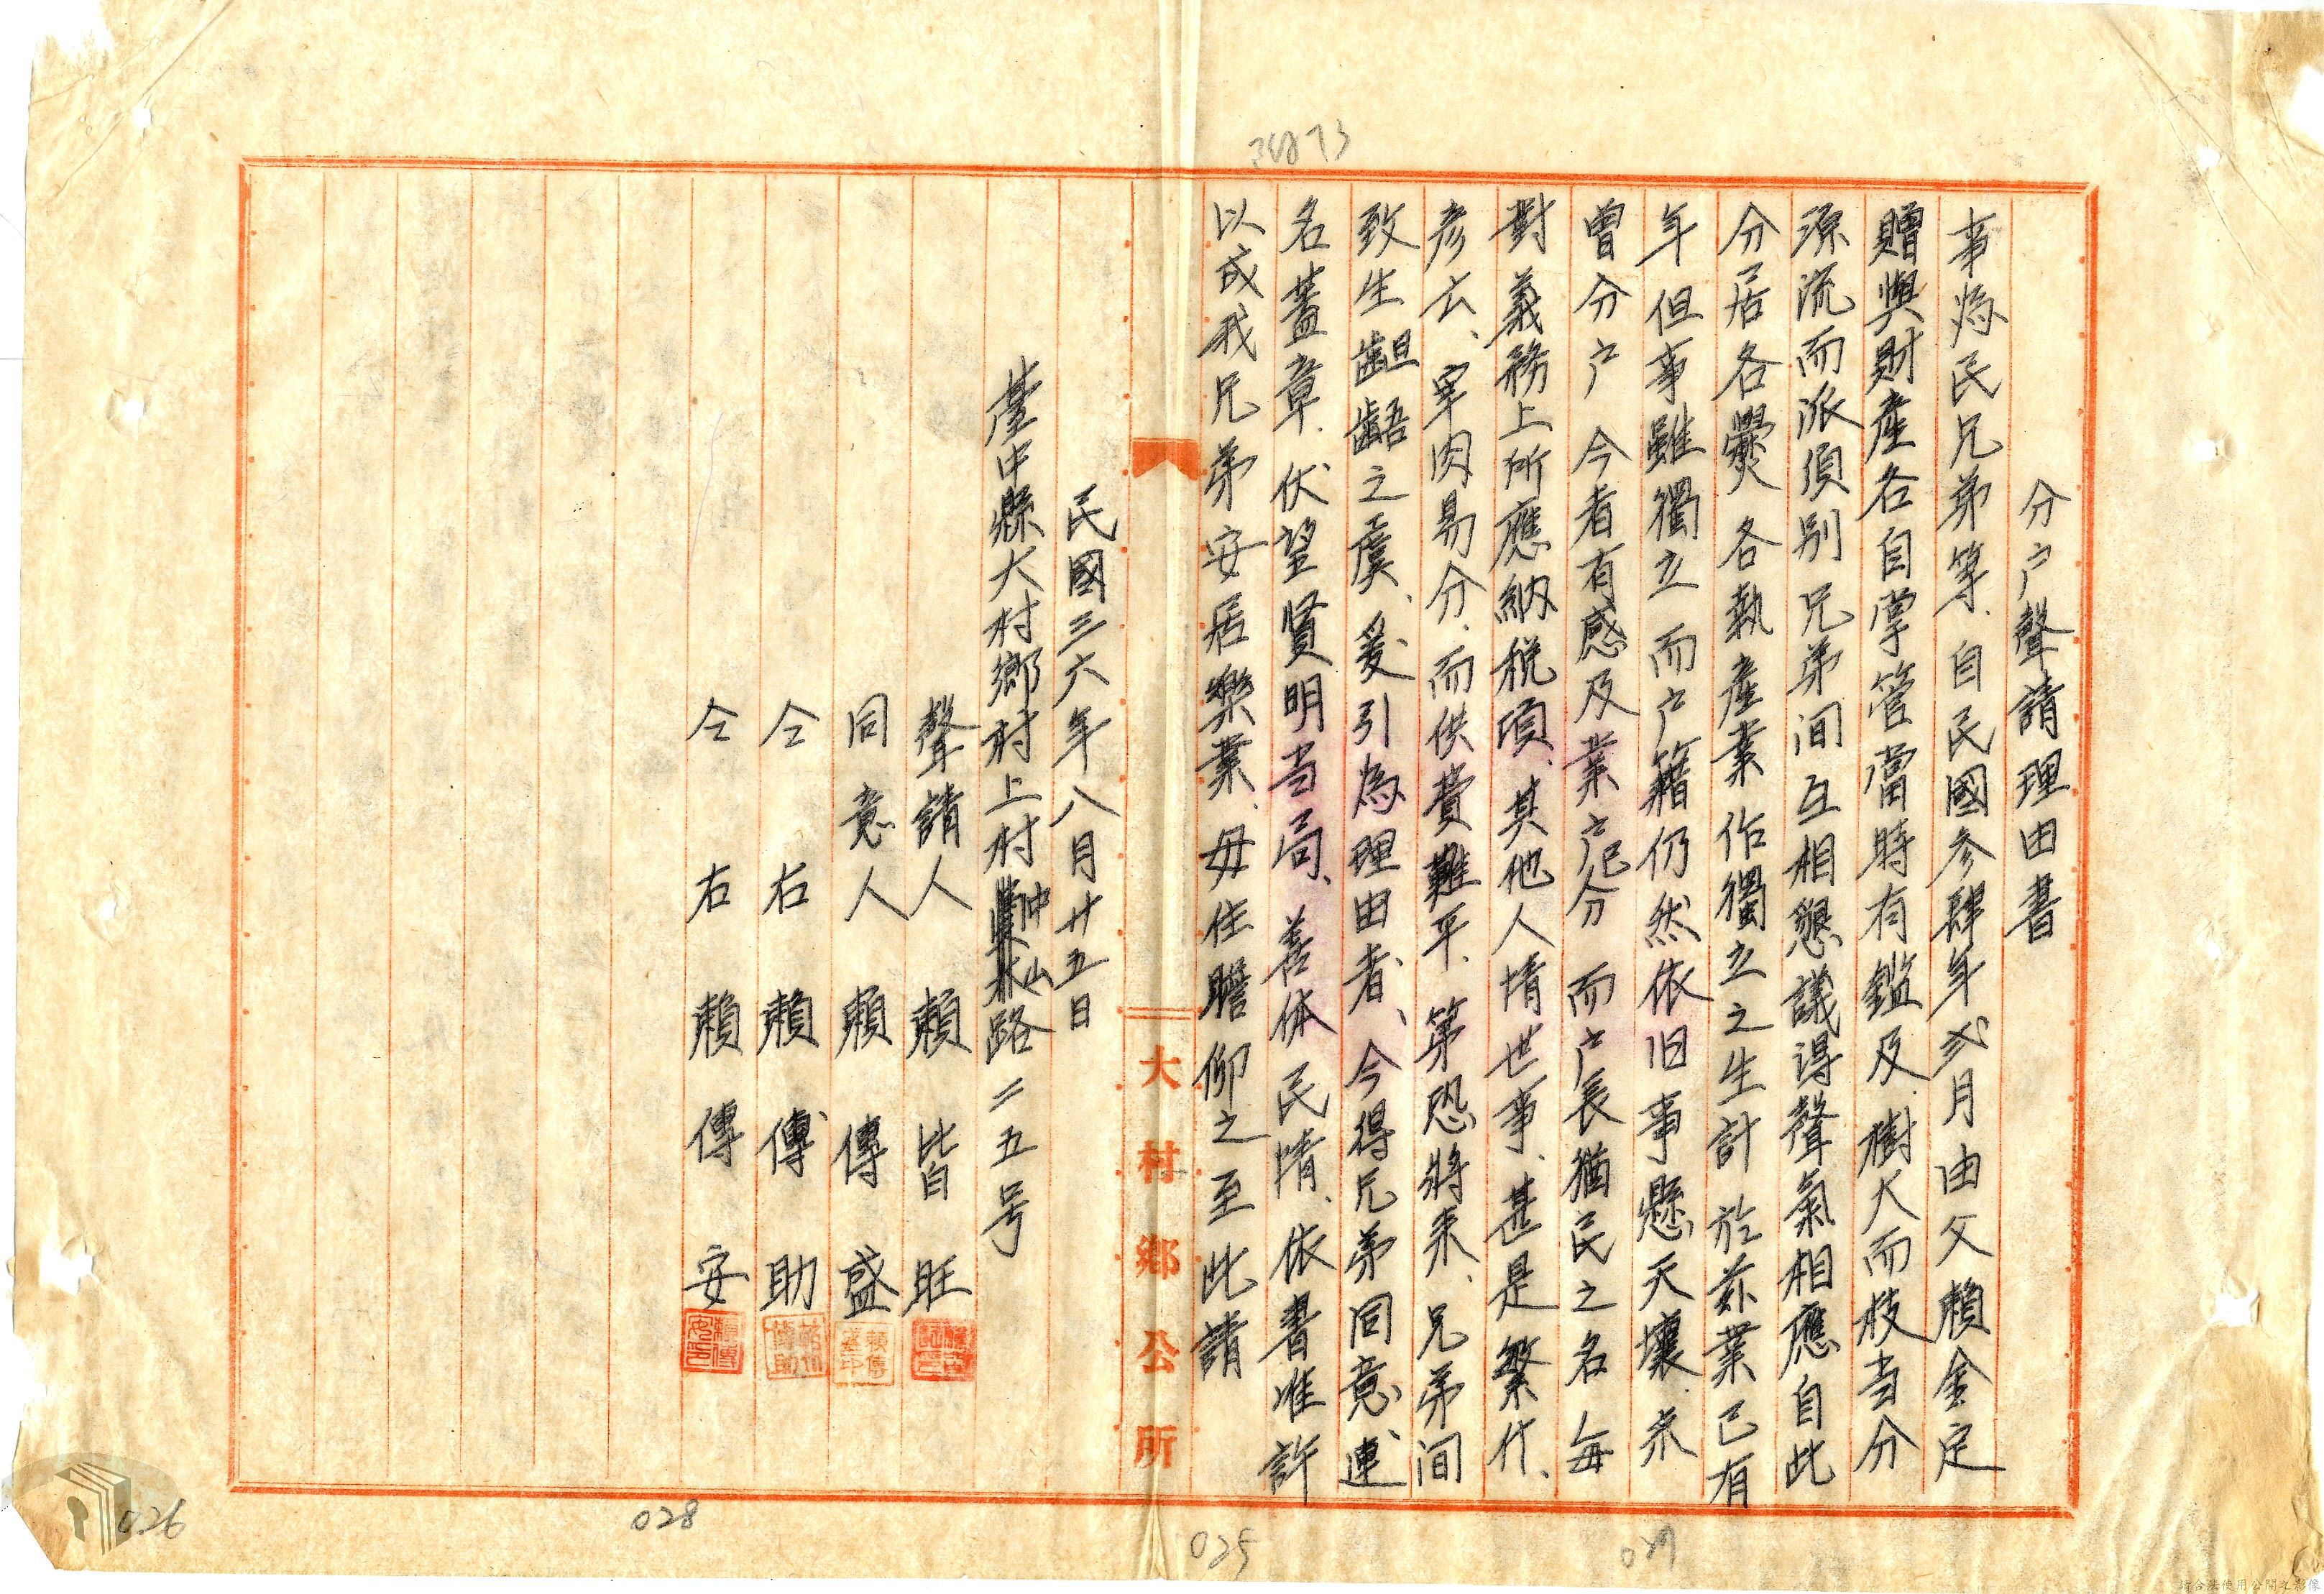 分户聲請理由書
事為民兄弟等、自民國參肆年弍月由父賴金定
贈與財產各自掌管當時有鑑及、樹大而枝当分
源流而派須别兄弟间互相懇議得聲氣相應自此
分居各爨各執產業作獨立之生計於茲業已有
年但事雖獨立而户籍仍然依旧事懸天壤、未
曾分户今者有感及業户已分而户長猶民之名每
對義務上所應納税項、其他人情世事、甚是繁什、
彦云、宰肉易分、而供費難平、第恐將来、兄弟间
致生齟齬之虞、爰引為理由者、今得兄弟同意、連
名蓋章、伏望贤明当局、善体民情、依書准許
以成我兄弟安居樂業、毋任瞻仰之至此請
大村鄉公所
民國三六年八月廿五日
臺中縣大村鄉村上村中山路二五号
聲請人 賴皆旺
同意人 賴傳盛
仝右 賴傳助
仝右 賴傳安
026
028
025
027